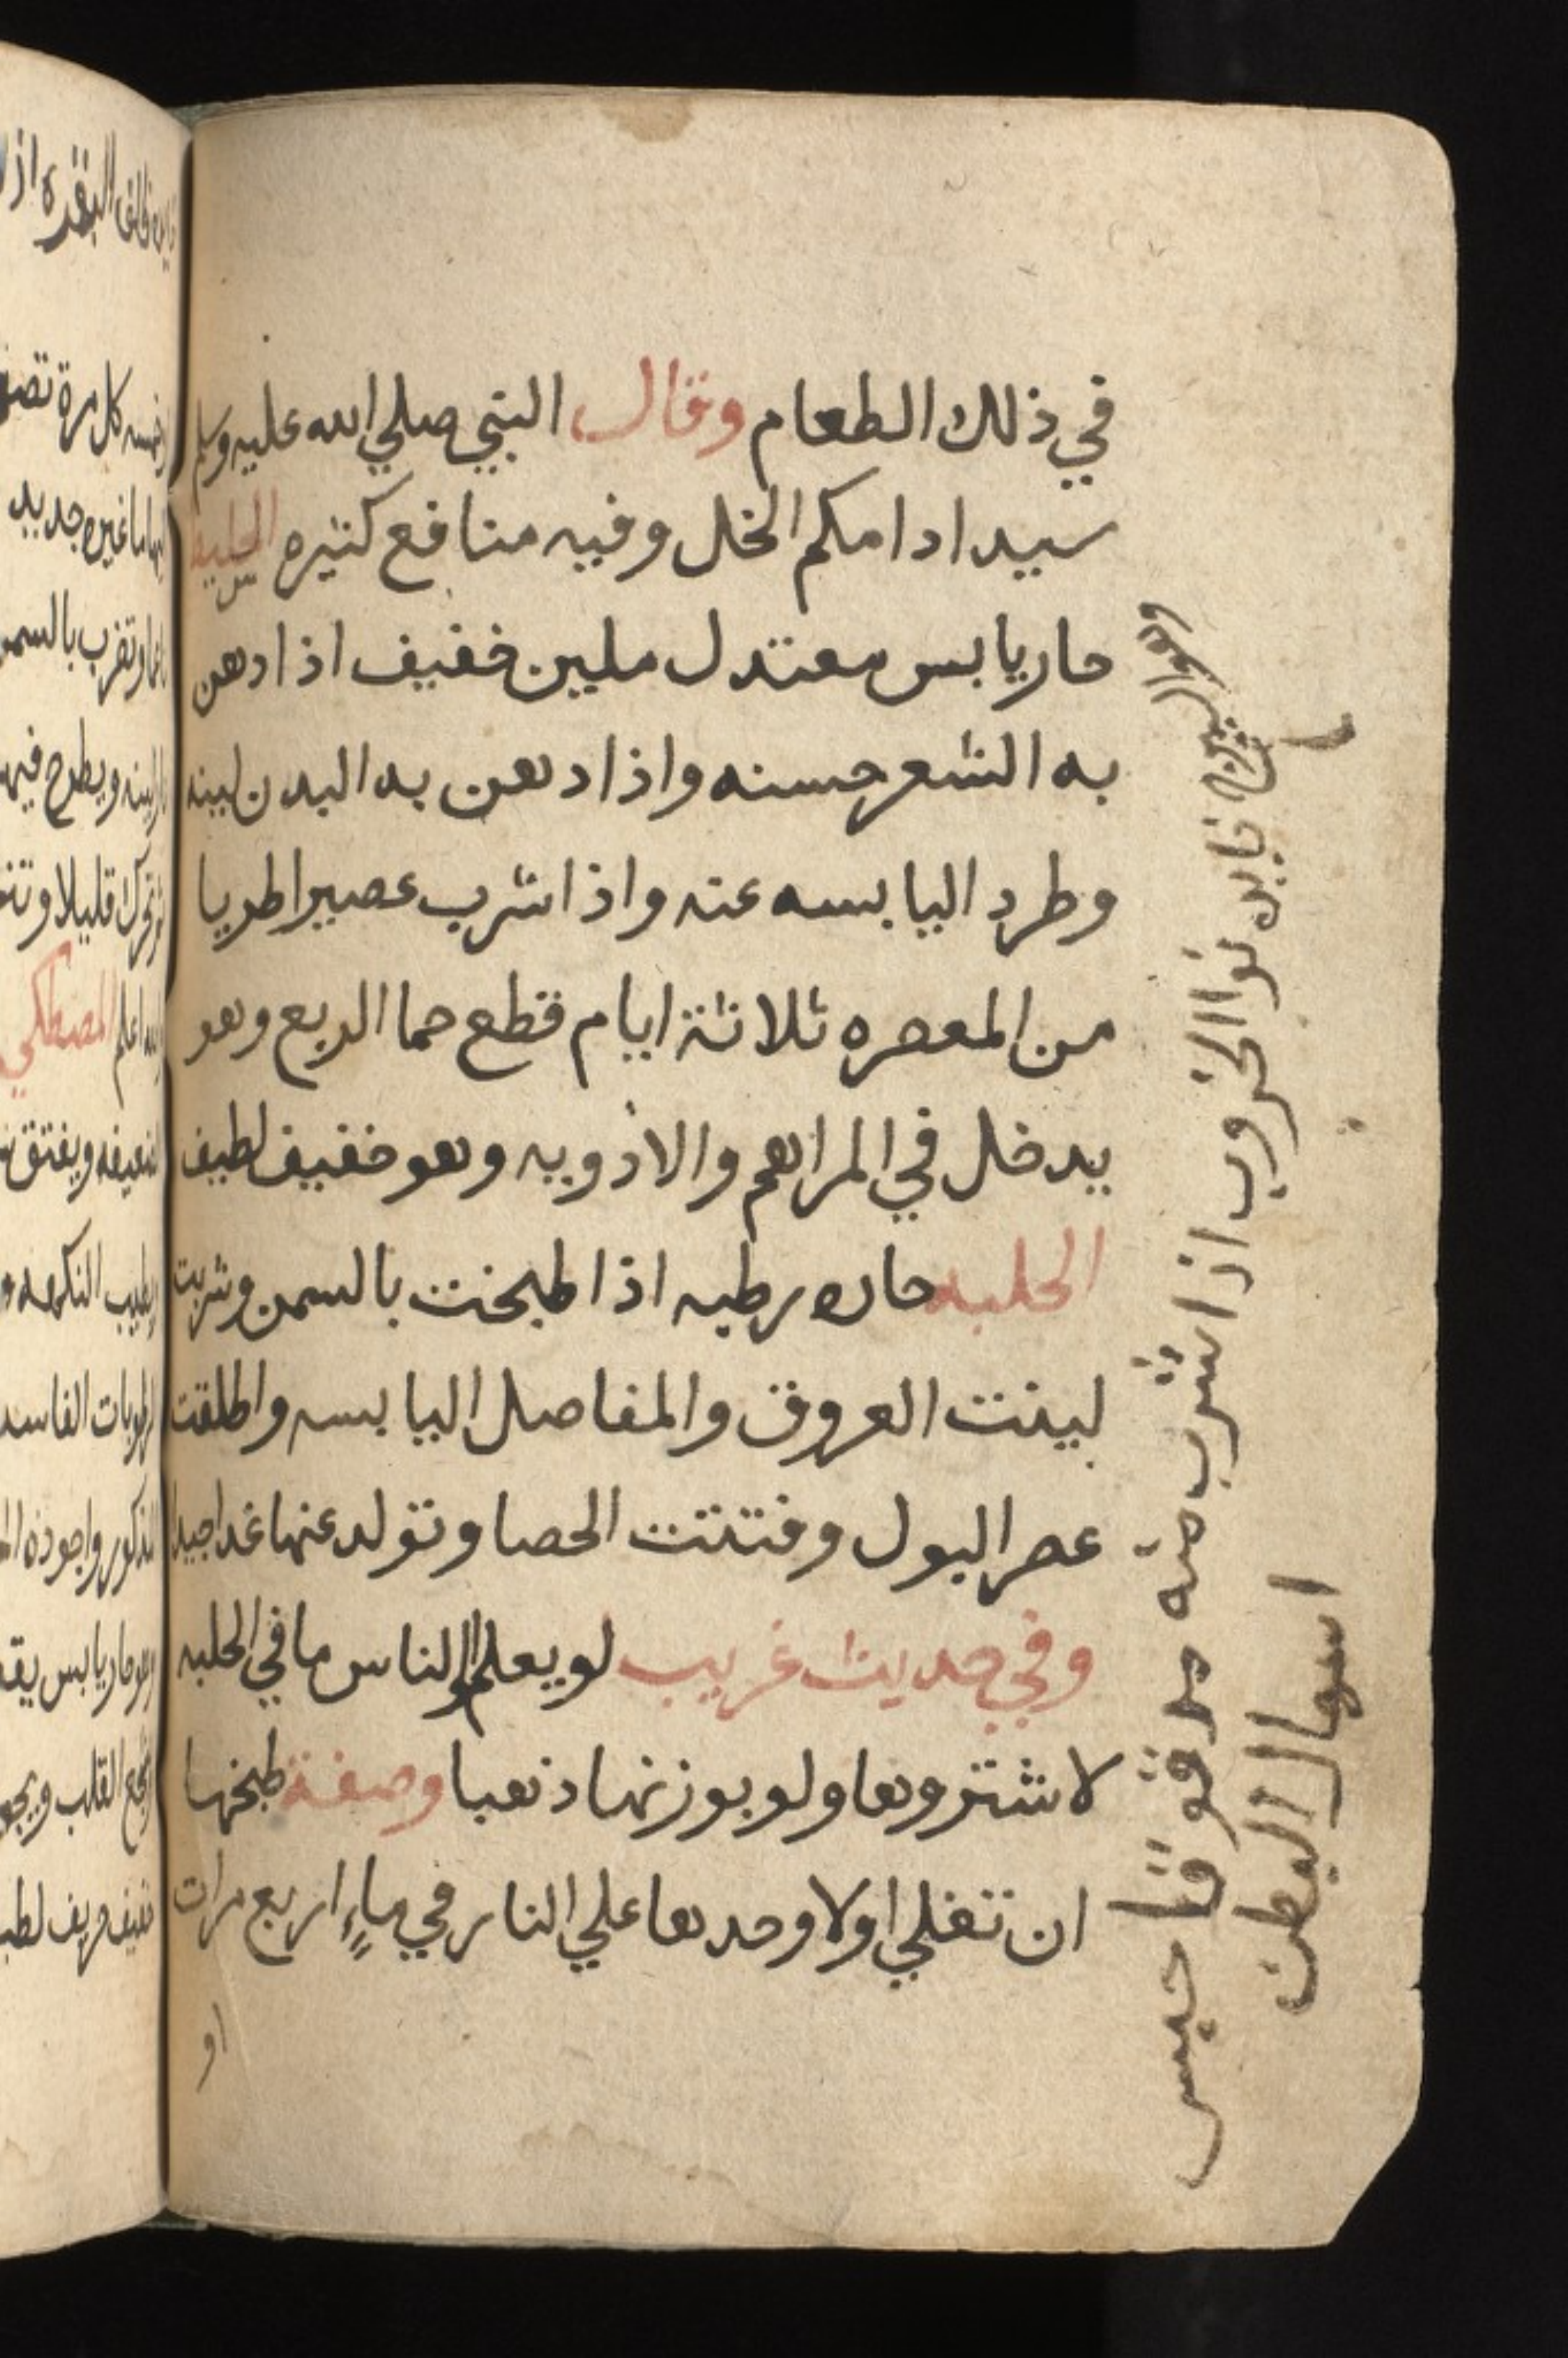 في ذلك الطعام وقال النبي صلي الله عليه وسلم
سيد ادامكم الخل وفيه منافع كثيره
حار يابس معتدل ملين خفيف اذا دهن
به الشعر حسنه واذا دهن به البدن لينه
وطرد اليابسه عنه واذا شرب عصيرا طريا
من المعصره ثلاثة ايام قطع حما الربع وهو
يدخل في المراهم والادويه وهو خفيف لطيف
الحلبه حاره رطبه اذا طبخت بالسمن وشربت
لينت العروق والمفاصل اليابسه واطلقت
عصر البول وفتتت الحصا وتولد عنها غدا جيدا
وفي حديث غريب لو يعلم الناس ما في الحلبه
لاشتروها ولو بوزنها ذهبا وصفة طبخها
ان تغلي اولا وحدها علي النار في ماء اربع مرات
او
وهو الشيرج فايده نوا الخروب اذا شرب منه مدقوقا حبس
اسهال البطن